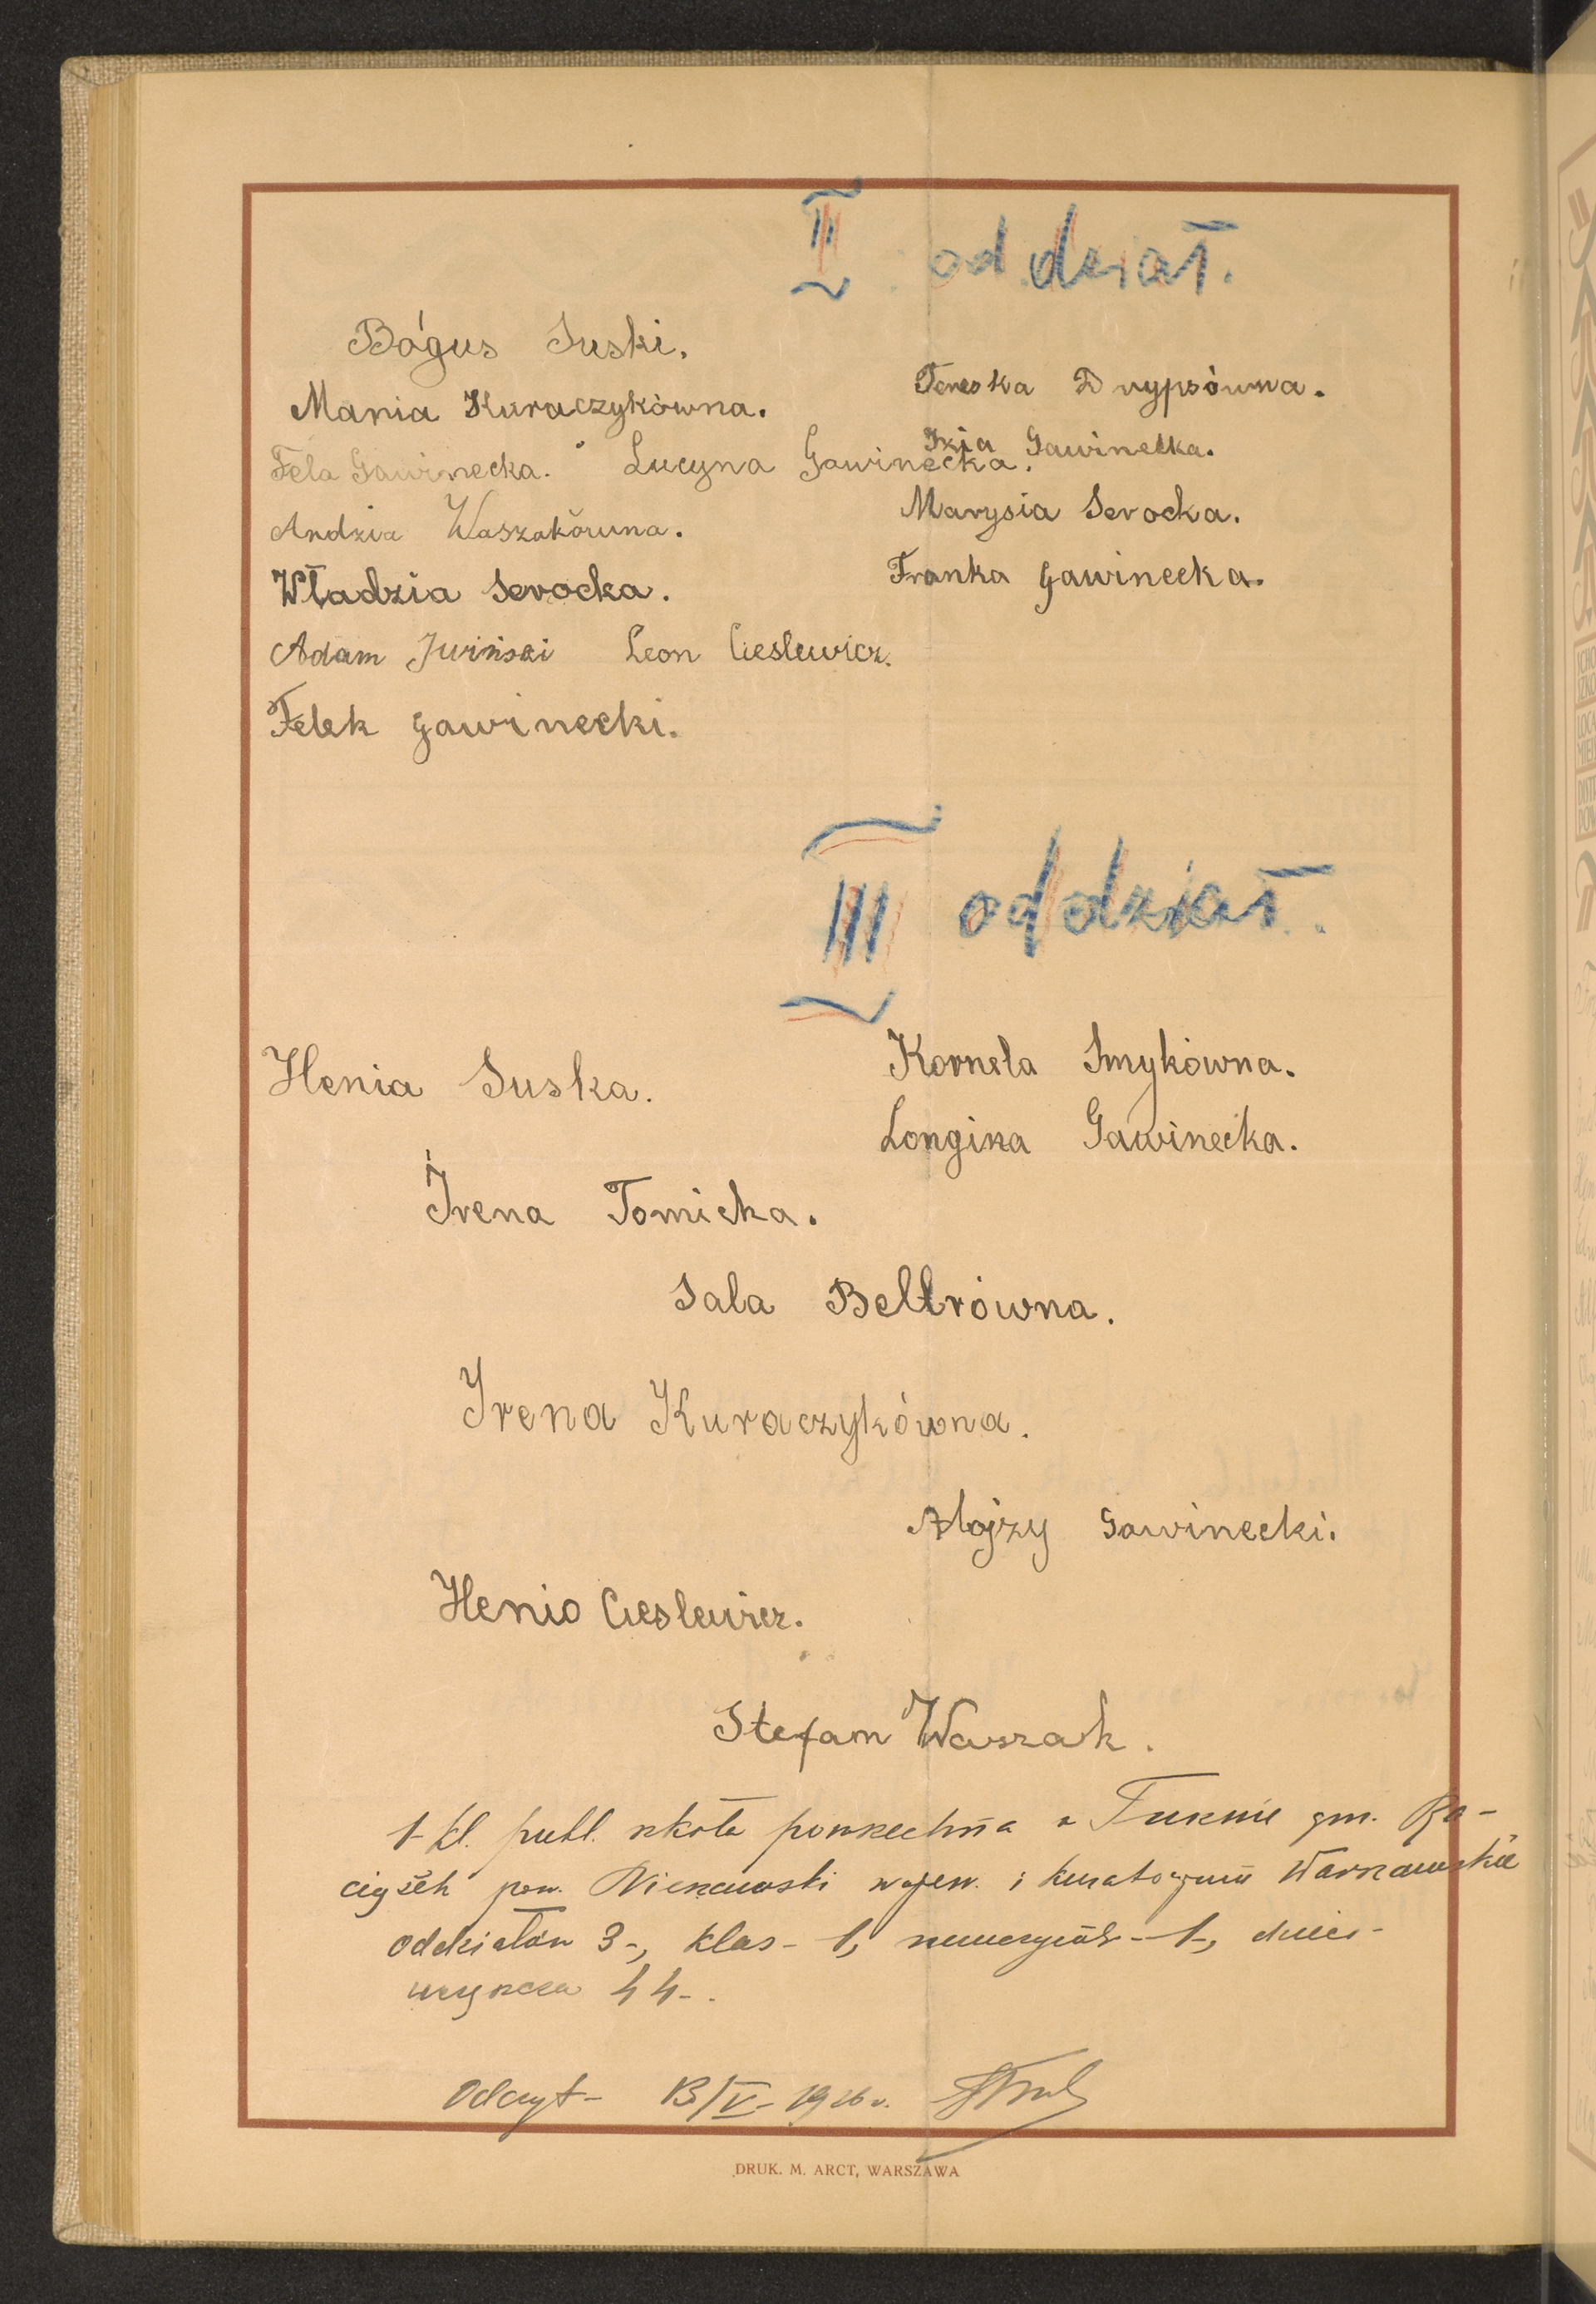 II oddział.
Boguś Suski.
Mania Kuraczykówna.
Fela Gawinecka. Lucyna Gawinecka.
Andzia Waszakówna.
Władzia Serocka.
Adam Iwiński Leon Cieslewicz.
Felek Gawinecki.
Tereska
Izia Gawinecka.
Marysia Serocka.
Franka Gawinecka.
III oddział.
Henia Suska.
Kornela Smykówna.
Longina Gawinecka.
Irena Tomicka.
Sala Beltrówna.
Irena Kuraczykówna.
Alojzy Gawinecki.
Henio Cieslewicz.
Stefan Waszak.
1-kl. publ. szkoła powszechna w gm. Ra-
ciążek pow. Nieszawski wojew. i kuratorjum Warszawskie
oddziałów 3-, klas-1, nauczyciel-1-,
44-.
Odczyt- 13/V-1926 r.
DRUK. M. ARCT, WARSZAWA